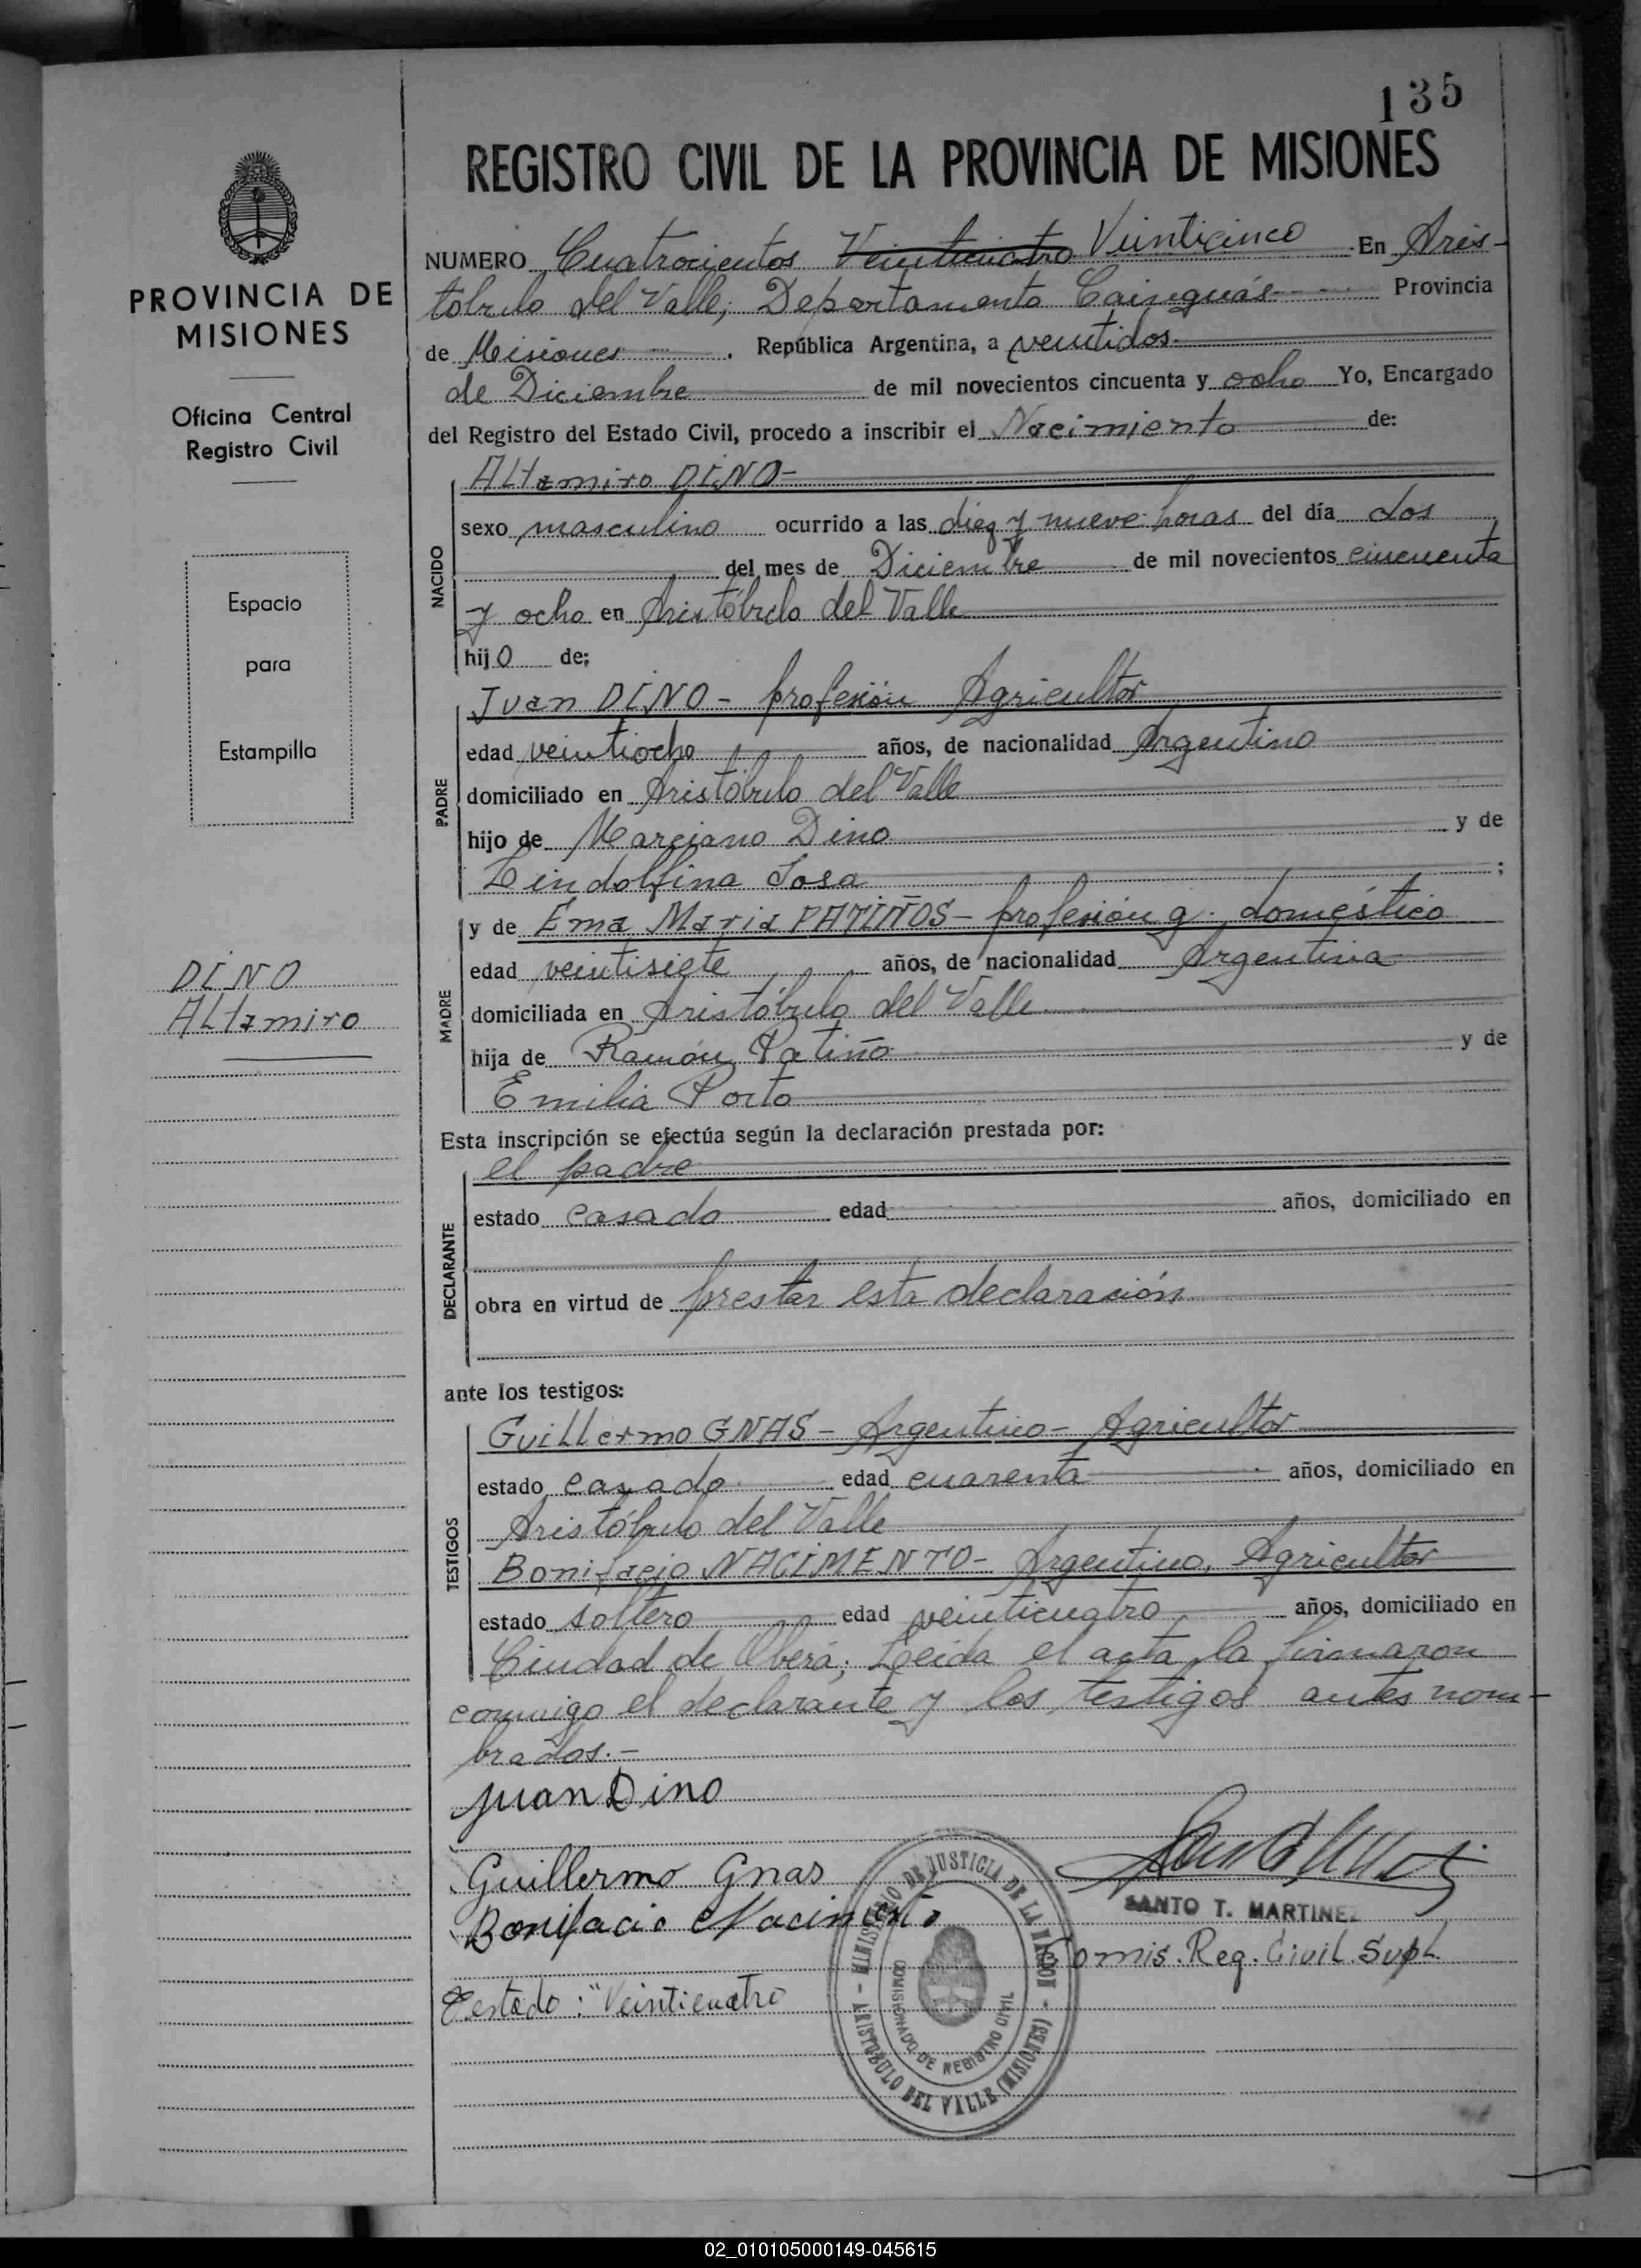 135
REGISTRO CIVIL DE LA PROVINCIA DE MISIONES
PROVINCIA DE
MISIONES
Oficina Central
Registro Civil
Espacio
para
Estampilla
DINO
Altamiro
NUMERO Cuatrocientos Veinticuatro Veinticinco En Aris-
tóbulo del Valle, Departamento Cainguás Provincia
de Misiones . República Argentina, a veintidos
de Diciembre de mil novecientos cincuenta y ocho Yo, Encargado
del Registro del Estado Civil, procedo a inscribir el Nacimiento de:
NACIDO
Altamiro DINO-
sexo masculino ocurrido a las diez y nueve horas del día dos
del mes de Diciembre de mil novecientos cincuenta
y ocho en Aristóbulo del Valle
hijo de:
PADRE
Juan DINO - profesión Agricultor
edad veintiocho años, de nacionalidad Argentino
domiciliado en Aristóbulo del Valle
hijo de Marciano Dino y de
Lindolfina Sosa ;
MADRE
y de Ema Maria PATIÑOS - profesión q. doméstico
edad veintisiete años, de nacionalidad Argentina
domiciliada en Aristóbulo del Valle
hija de Ramón Patiño y de
Emilia Porto
Esta inscripción se efectúa según la declaración prestada por:
DECLARANTE
el padre
estado casado edad años, domiciliado en
obra en virtud de prestar esta declaración
ante los testigos:
TESTIGOS
Guillermo GNAS - Argentino - Agricultor
estado casado edad cuarenta años, domiciliado en
Aristóbulo del Valle
Bonifacio NACIMENTO - Argentino, Agricultor
estado soltero edad veinticuatro años, domiciliado en
Ciudad de Oberá; Leída el acta la firmaron
conmigo el declarante y los testigos antes nom-
brados.-
Juan Dino
Guillermo Gnas
Bonifacio Nacimento
SANTO T. MARTINEZ
Comis. Reg. Civil. Supl.
Testado: "Veinticuatro
MINISTERIO DE JUSTICIA DE LA NACION - ARISTOBULO DEL VALLE (MISIONES) -
COMISIONADO DE REGISTRO CIVIL
02_010105000149-045615